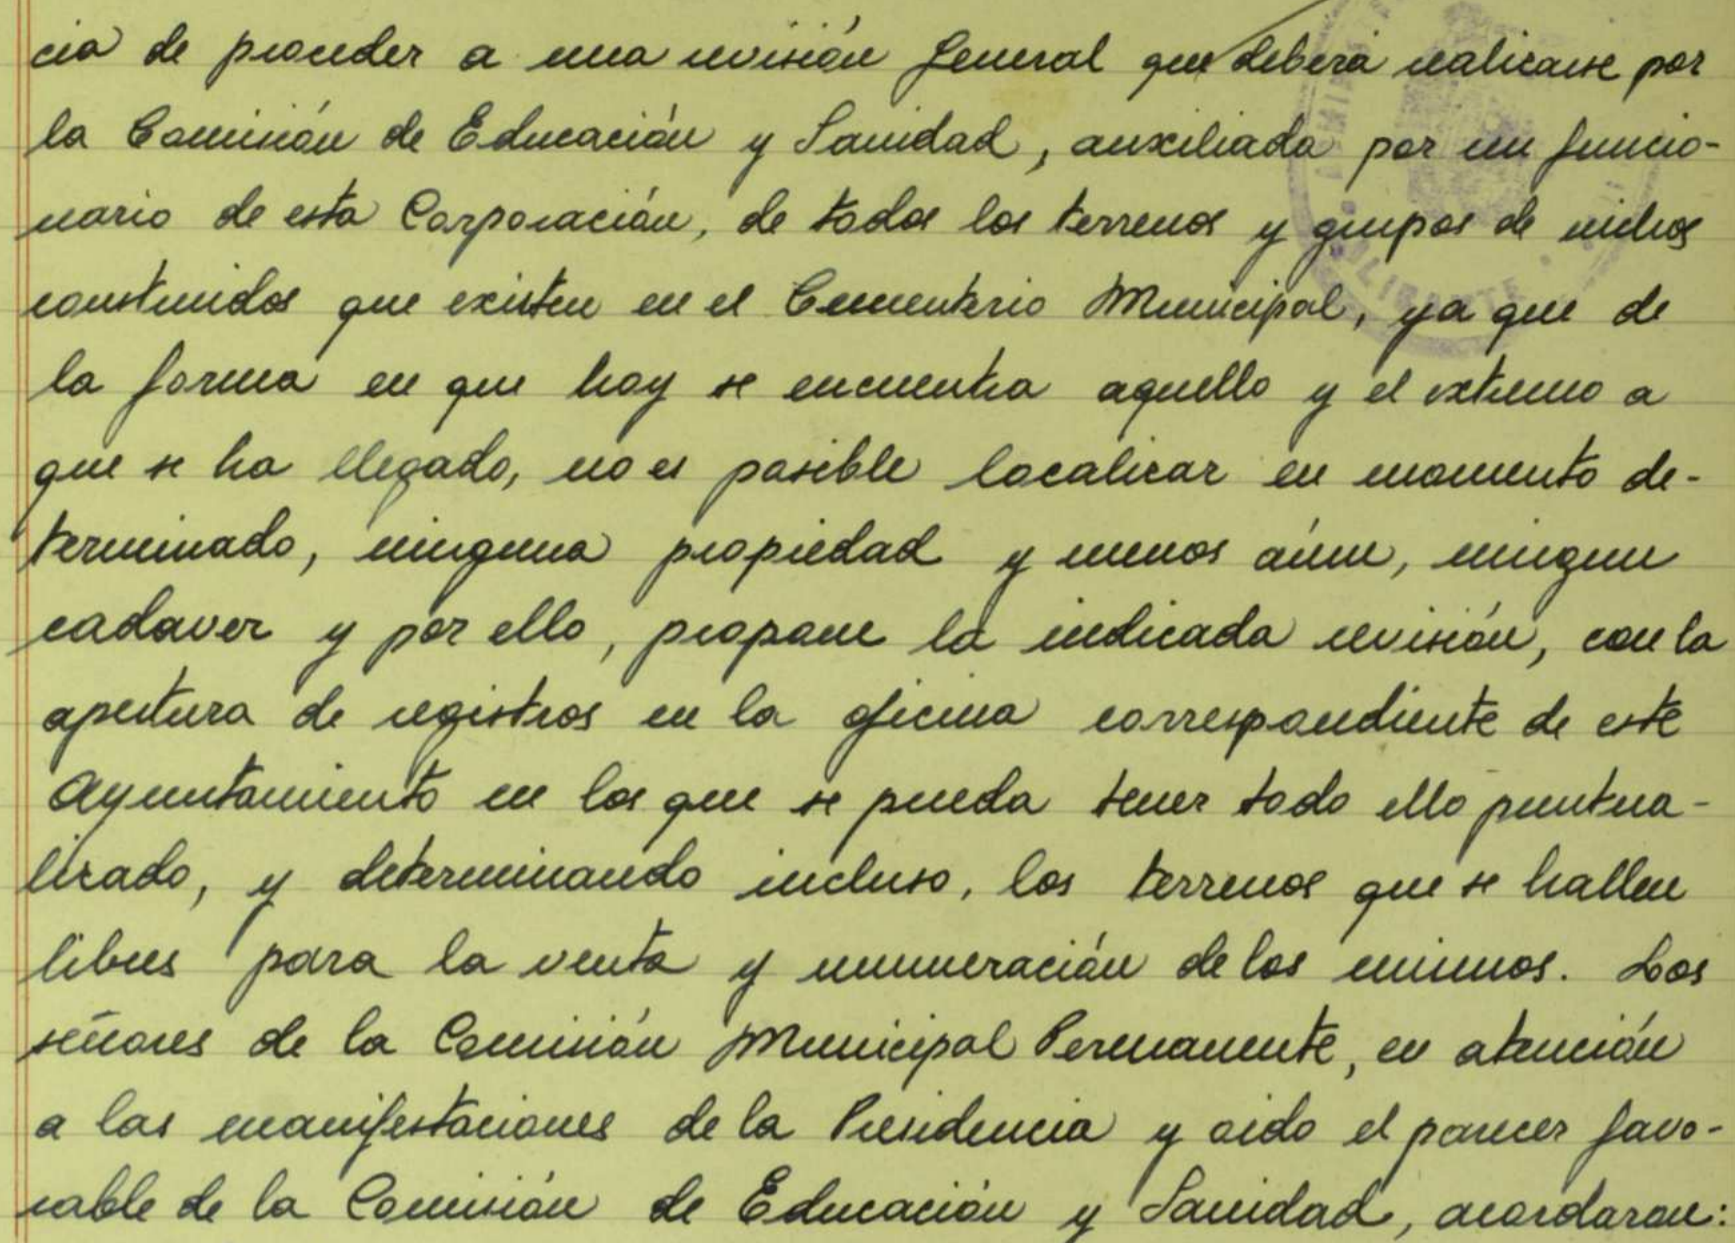 cia de proceder a una revisión general que deberá realizarse por
la Comisión de Educación y Sanidad, auxiliada por un funcio-
nario de esta Corporación, de todos los terrenos y grupos de nichos
construidos que existen en el Cementerio Municipal, ya que de
la forma en que hoy se encuentra aquello y el extremo a
que se ha llegado, no es posible localizar en momento de-
terminado, ninguna propiedad y menos aún, ningun
cadaver y por ello, propone la indicada revisión, con la
apertura de registros en la oficina correspondiente de este
Ayuntamiento en los que se pueda tener todo ello puntua-
lizado, y determinando incluso, los terrenos que se hallen
libres para la venta y numeración de los mismos. Los
señores de la Comisión Municipal Permanente, en atención
a las manifestaciones de la Presidencia y oido el parecer favo-
rable de la Comisión de Educación y Sanidad, acordaron: